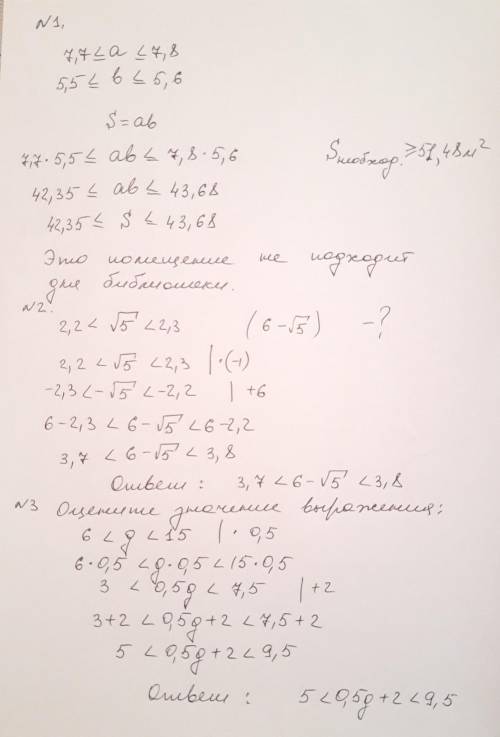 №1.
7,7 ≤ a ≤ 7,8
5,5 ≤ b ≤ 5,6
S = ab
7,7·5,5 ≤ ab ≤ 7,8·5,6
Sнеобход. ≥ 51,48 м²
42,35 ≤ ab ≤ 43,68
42,35 ≤ S ≤ 43,68
Это помещение не подходит
для библиотеки.
№2.
2,2 < √5 < 2,3 (6 - √5) - ?
2,2 < √5 < 2,3 | ·(-1)
-2,3 < -√5 < -2,2 | +6
6 - 2,3 < 6 - √5 < 6 - 2,2
3,7 < 6 - √5 < 3,8
Ответ: 3,7 < 6 - √5 < 3,8
№3 Оцените значение выражения:
6 < g < 15 | · 0,5
6·0,5 < g·0,5 < 15·0,5
3 < 0,5g < 7,5 | +2
3+2 < 0,5g+2 < 7,5+2
5 < 0,5g+2 < 9,5
Ответ: 5 < 0,5g+2 < 9,5